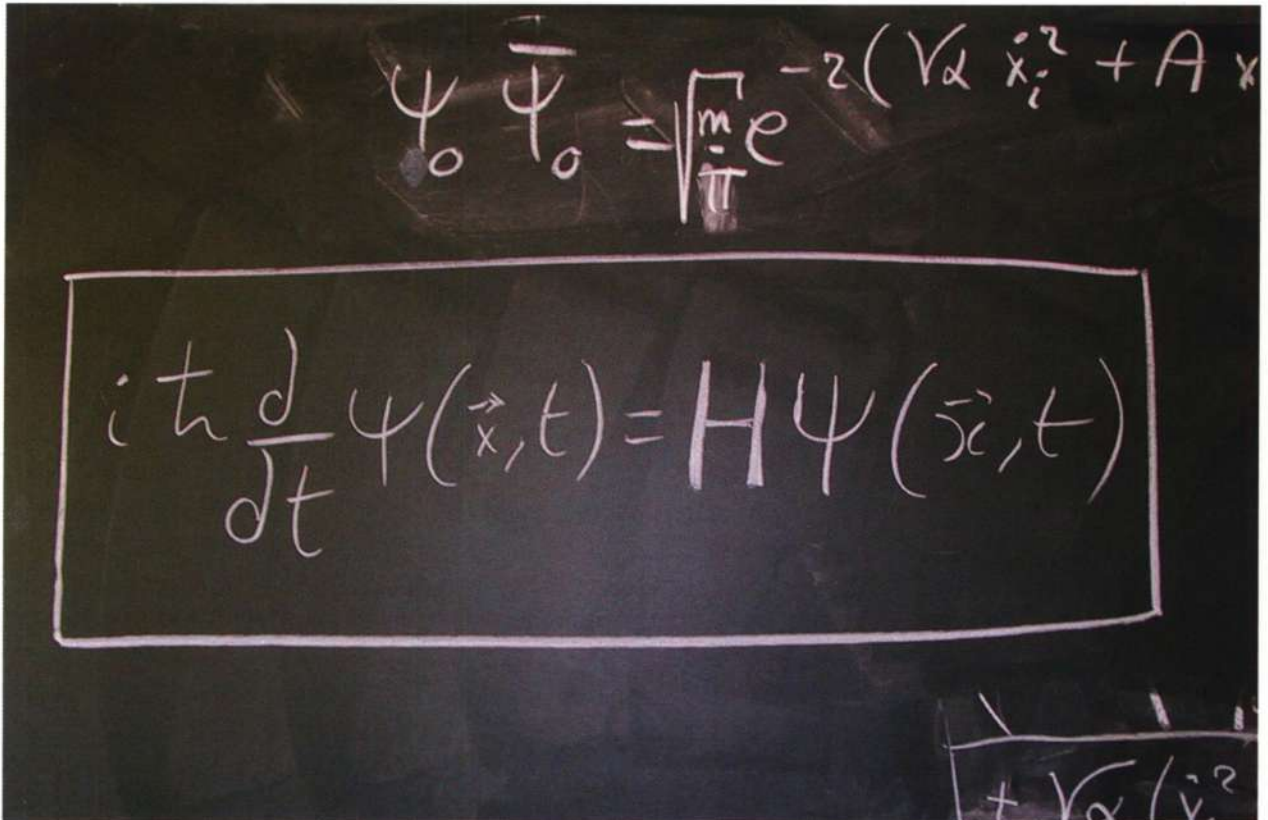 ψ₀ ψ̄₀ = √(m/π) e^{-2(√α ẋᵢ² + A x
iħ d/dt ψ(x⃗,t) = H ψ(x⃗,t)
+ √α (